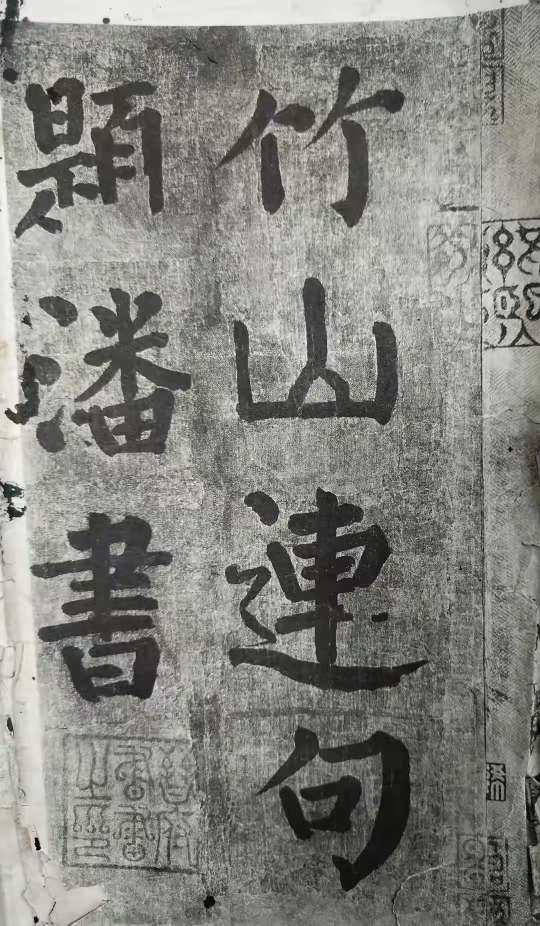 竹山連句
題潘書